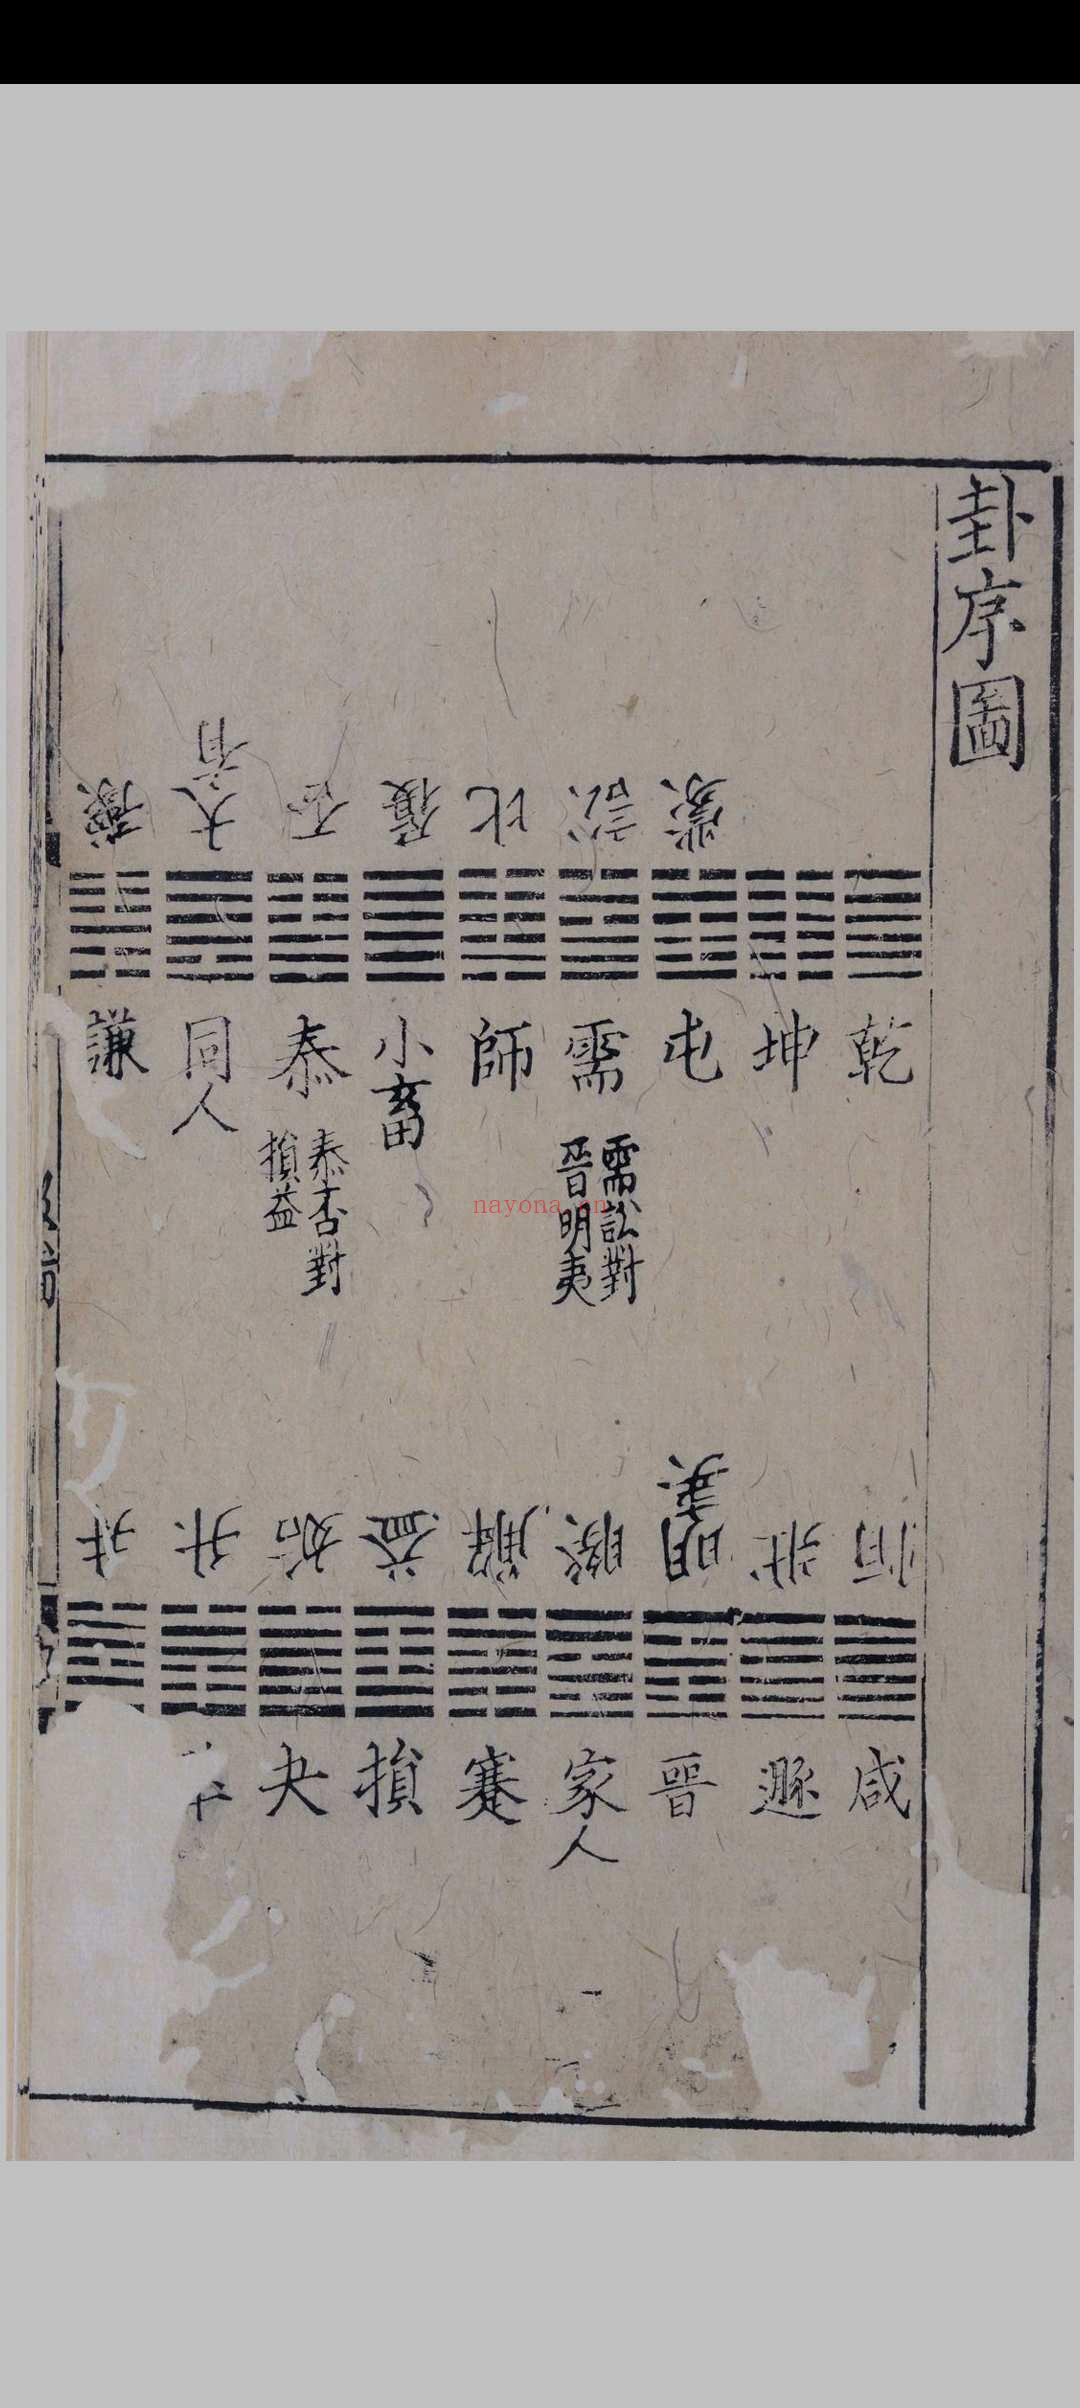 卦序圖
乾
坤
蒙
屯
訟
需
需訟對
晉明夷
比
師
履
小畜
否
泰
泰否對
損益
大有
同人
謙
恒
咸
壯
遯
明夷
晉
睽
家人
解
蹇
益
損
姤
夬
升
井
nayona.cn